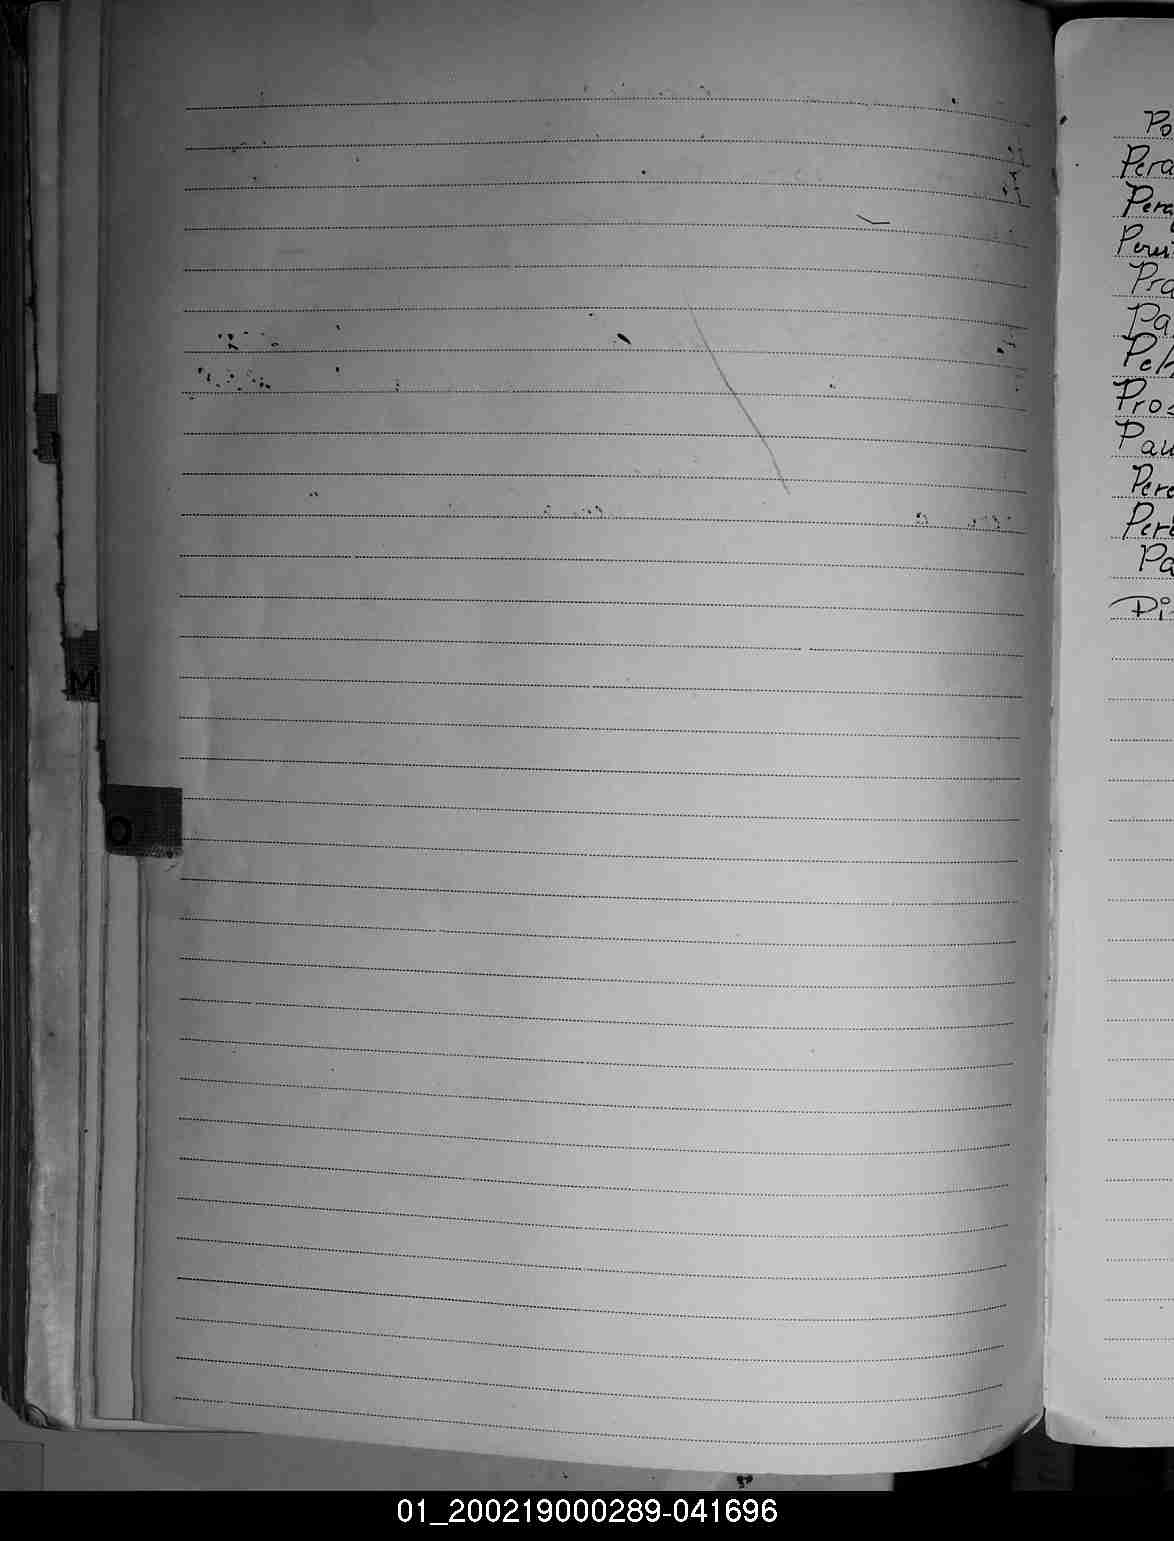 M
O
Po
Pera
Pera
Pro
Pa
Pel
Pros
Pau
Pere
Pere
Pa
Di
01_200219000289-041696